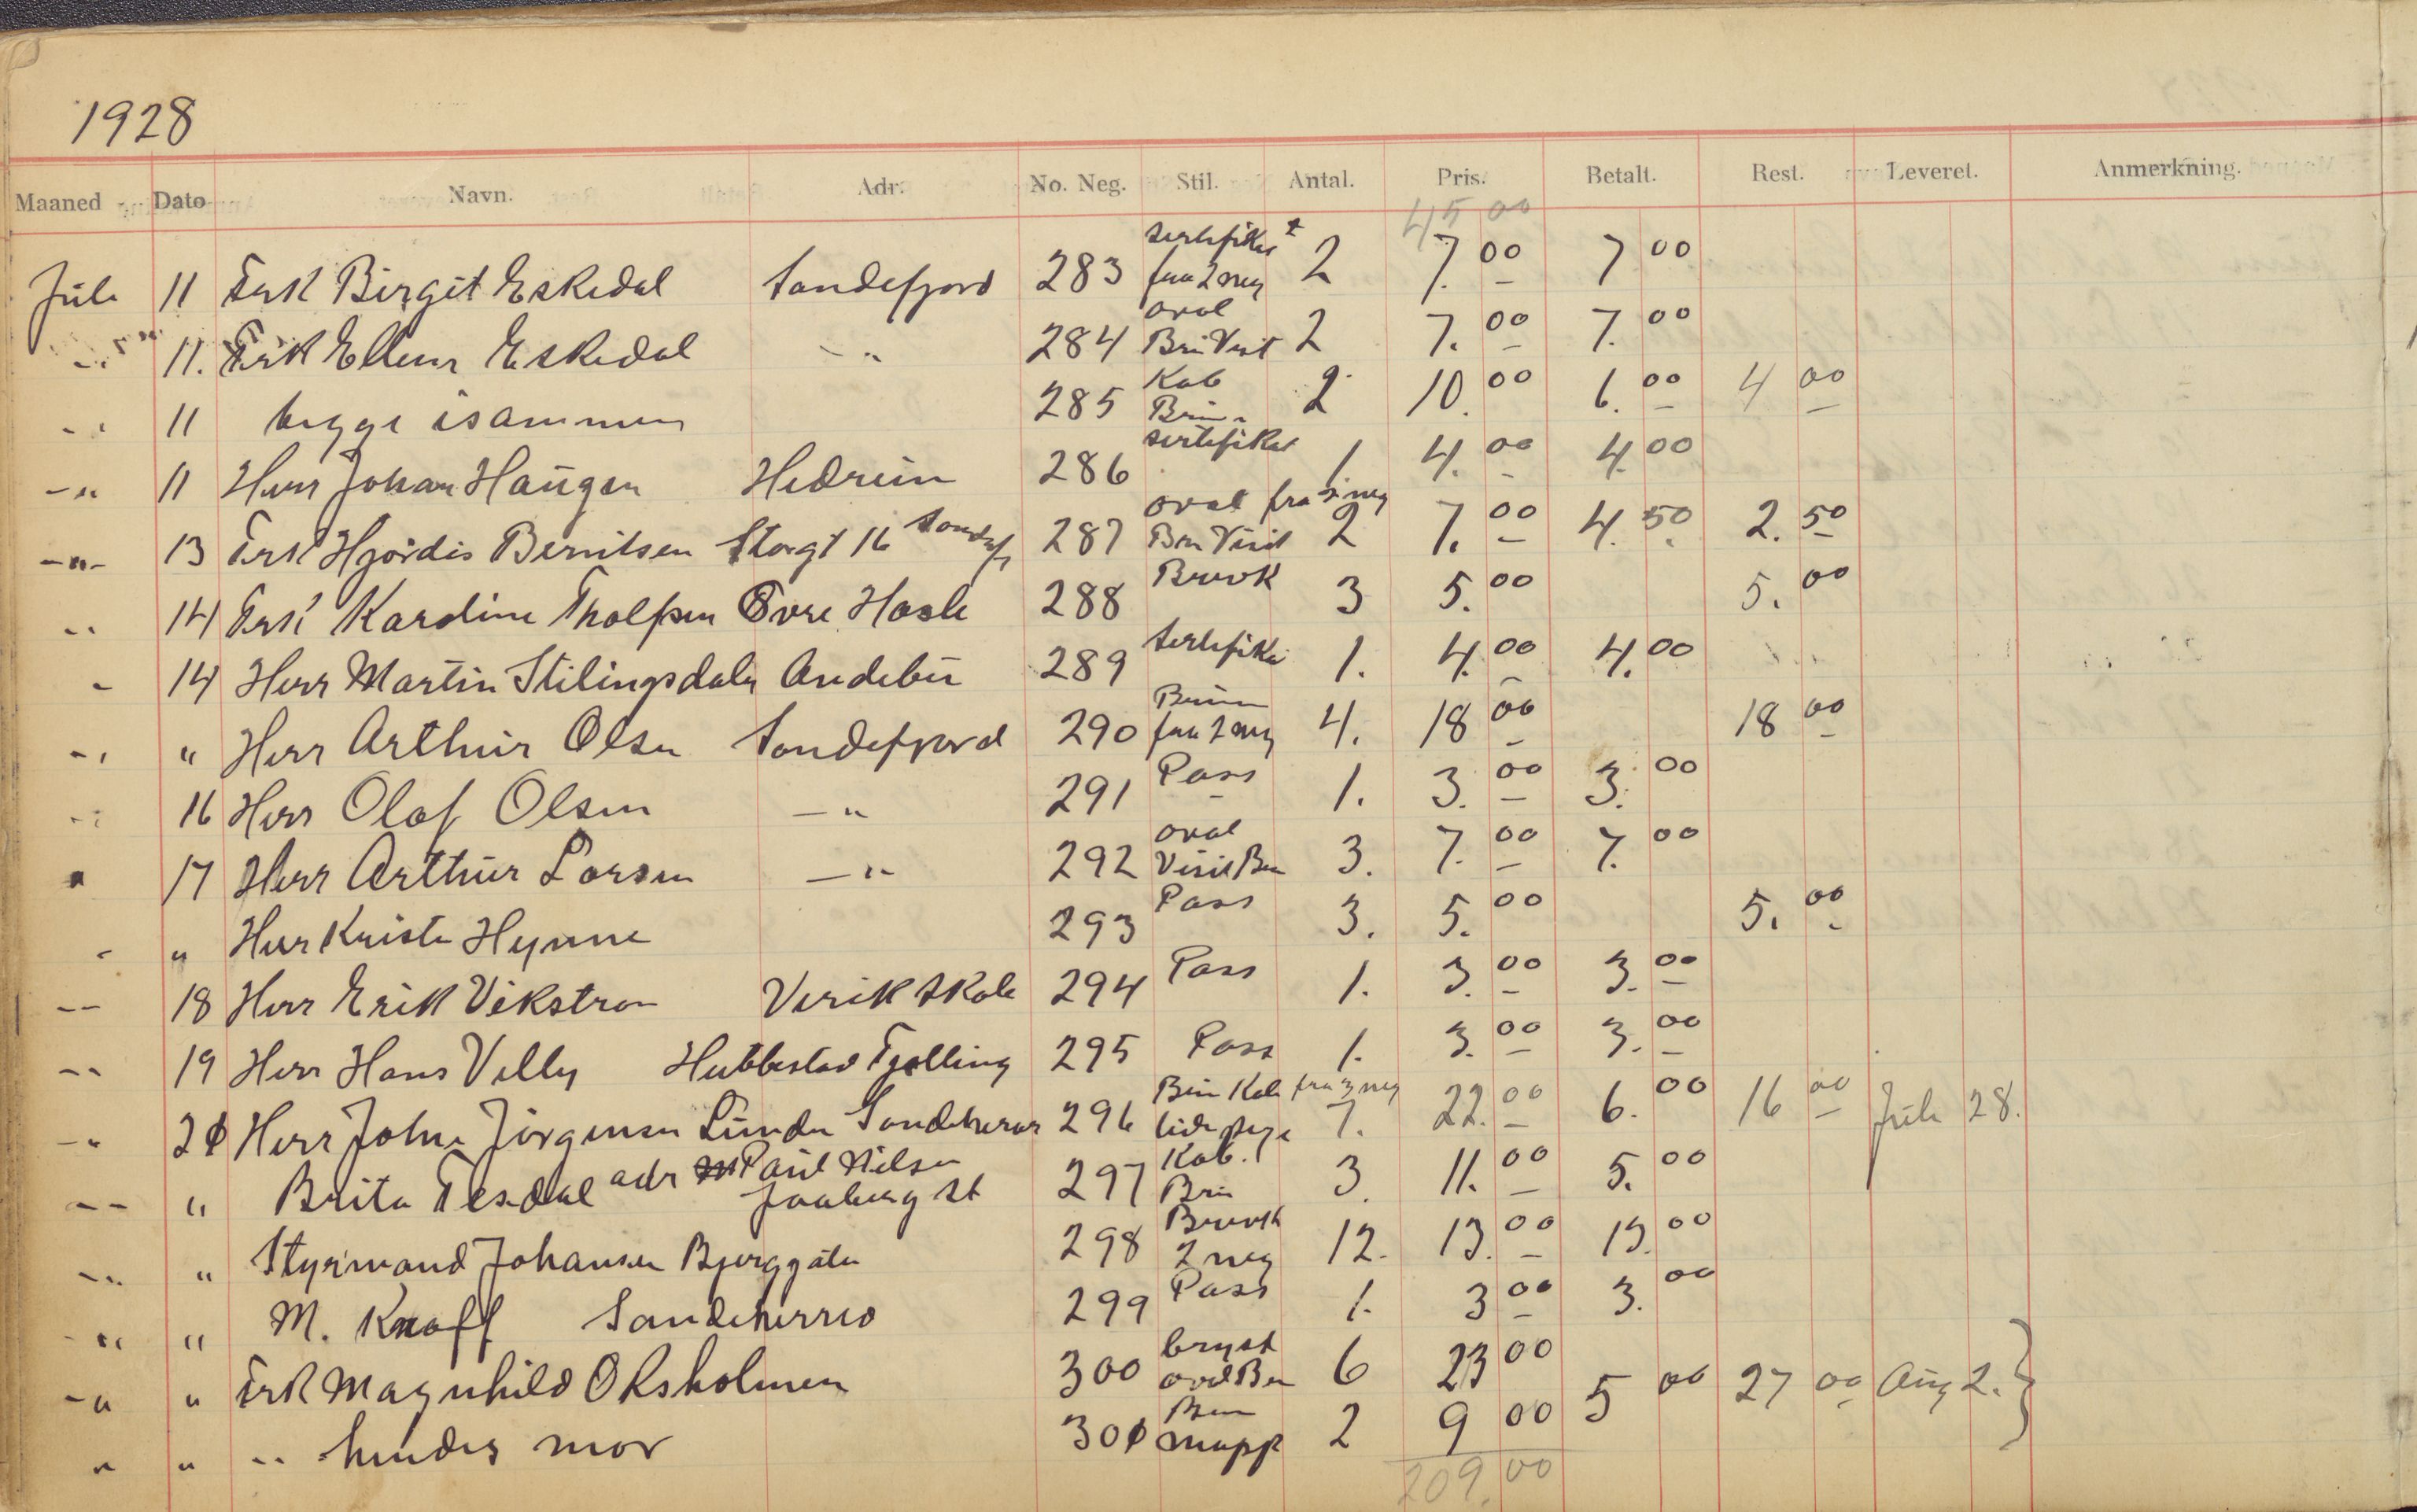 1928
Maaned Dato Navn. Adr. No. Neg. Stil. Antal. Pris. Betalt. Rest. Leveret. Anmerkning.
45 00
Juli 11 Frk Birgit Eskedal Sandefjord 283 sertifikat fra 2 neg 2 7. 00 7 00
-"- 11. Frk Ellen Eskedal -"- 284 oval Brun Visit 2 7. 00 7. 00
-"- 11 begge isammen 285 Kab Brun 2 10. 00 6. 00 4 00
-"- 11 Herr Johan Haugen Hedrum 286 sertifikat 1. 4. 00 4. 00
-"- 13 Frk Hjördis Berntsen Storgt 16 Sandefj 287 oval fra 2 neg Brn Visit 2 7. 00 4. 50 2. 50
-"- 14 Frk Karoline Tholfsen Övre Hasle 288 Brevk 3 5. 00 5. 00
- 14 Herr Martin Stilingsdalen Andebu 289 Sertifika 1. 4. 00 4. 00
-"- " Herr Arthur Olsen Sandefjord 290 Brun fra 2 neg 4. 18 00 18 00
-"- 16 Herr Olaf Olsen -"- 291 Pass 1. 3. 00 3. 00
" 17 Herr Arthur Larsen -"- 292 oval Visit Brn 3. 7. 00 7. 00
- " Herr Kriste Hynne 293 Pass 3. 5. 00 5. 00
-- 18 Herr Erik Vikstrom Virik Skole 294 Pass 1. 3. 00 3. 00
-- 19 Herr Hans Velly Hubbestad Tjølling 295 Pass 1. 3. 00 3. 00
-"- 20 Herr John Jörgensen Lunden Sandeherar 296 Brun Kab fra 3 neg 7. 22. 00 6. 00 16 00 Juli 28.
-- " Brita Tesdal adr Paul Nilsen 297 Kab. Brn 3. 11. 00 5. 00
-"- " Styrmand Johansen Bjerggaten 298 Brevk 2 neg 12. 13. 00 13. 00
-"- " M. Knaff Sandeherred 299 Pass 1. 3 00 3. 00
-"- " Frk Magnhild Oksholmen 300 bryst oval Brn 6 23 00 5 00 27 00 Aug 2.
" " -"- hendes mor 301 Brn mapp 2 9 00
209. 00